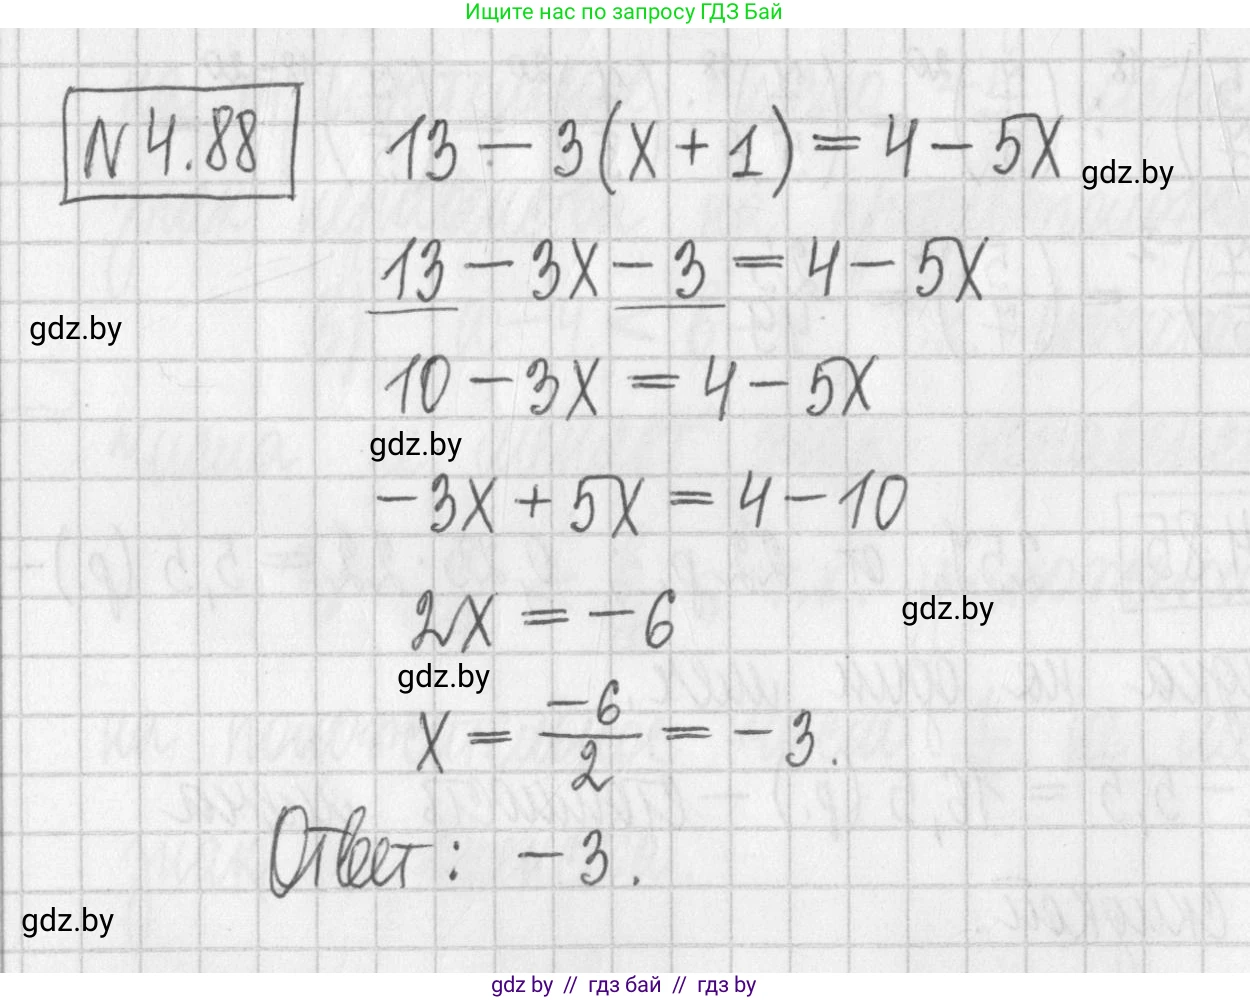 Ищите нас по запросу ГДЗ Бай
N 4.88
13 - 3(x + 1) = 4 - 5x
gdz.by
13 - 3x - 3 = 4 - 5x
gdz.by
10 - 3x = 4 - 5x
gdz.by
-3x + 5x = 4 - 10
2x = -6
gdz.by
gdz.by
x = -6/2 = -3.
Ответ: -3.
gdz.by
gdz by // гдз бай // гдз by